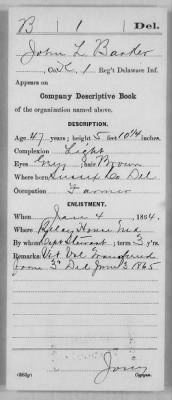 B | 1 | Del.
John L Barker
, Co. K, 1 Reg't Delaware Inf.
Appears on
Company Descriptive Book
of the organization named above.
DESCRIPTION.
Age 47 years; height 5 feet 10¼ inches.
Complexion Light
Eyes Grey; hair Brown
Where born Sussex Co Del
Occupation Farmer
ENLISTMENT.
When Jan 4, 1864.
Where Relay House Md
By whom Capt Stewart; term 3 y'rs.
Remarks: Vet Vol Transferred
from 3" Del June 3 1865
Copyist.